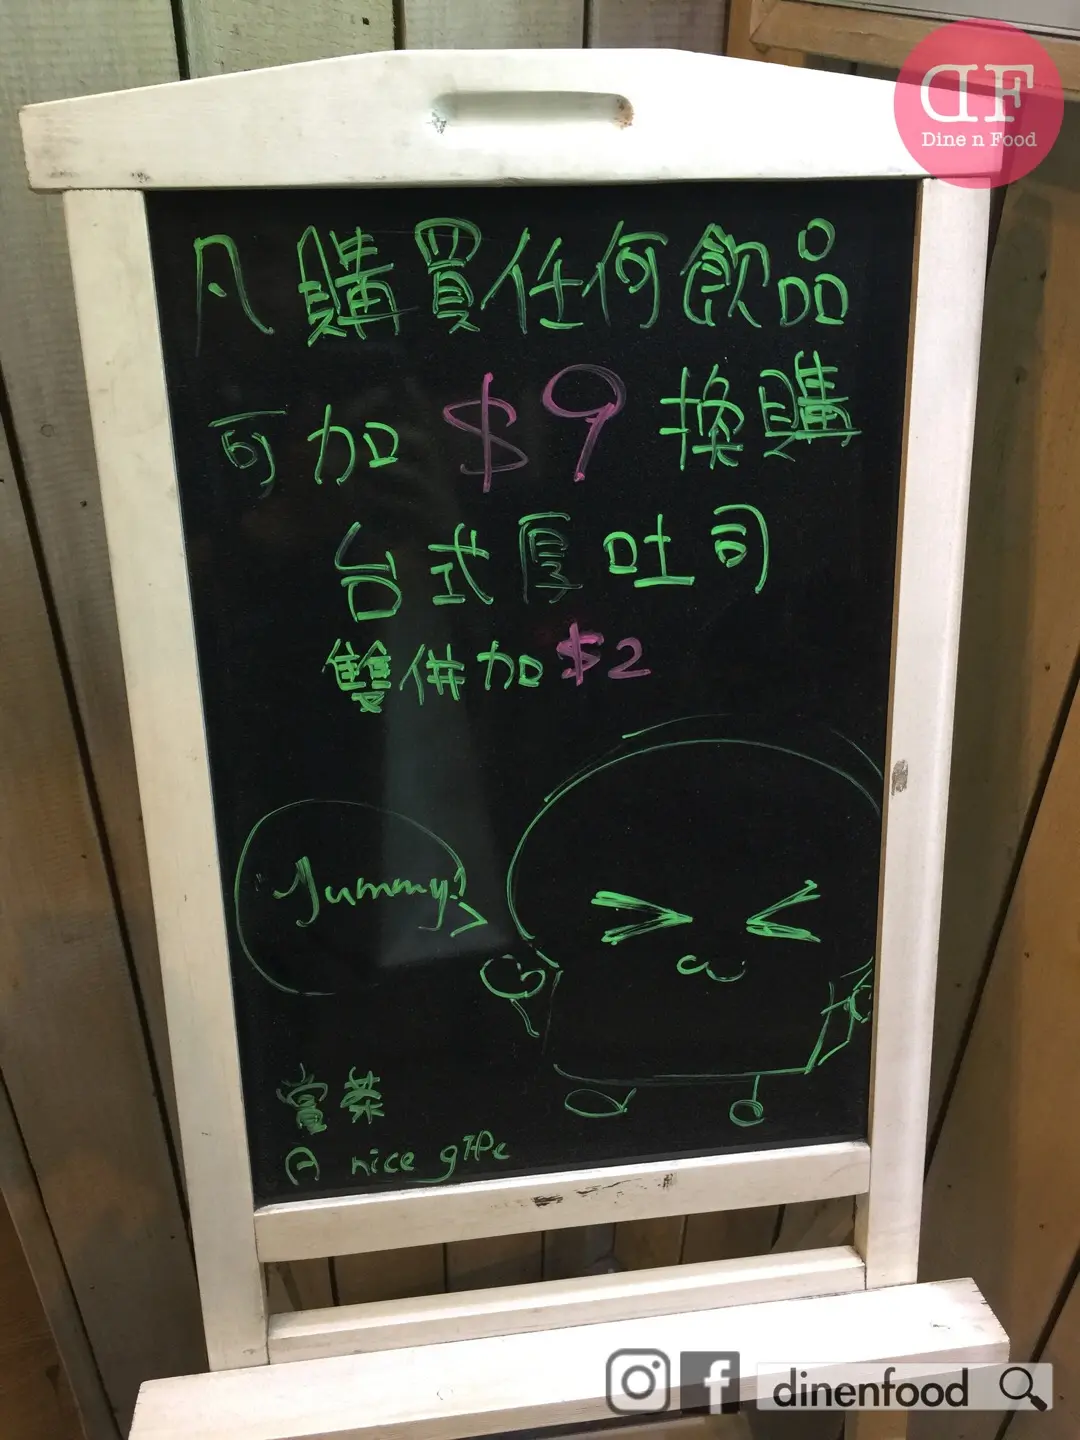 DF
Dine n Food
凡購買任何飲品
可加$9換購
台式厚吐司
雙併加$2
Yummy!
賞茶
A nice gift
dinenfood